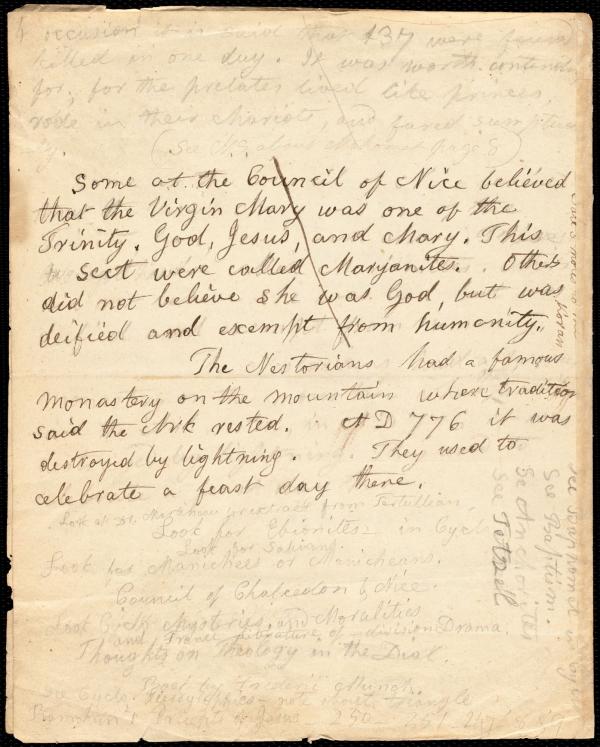 occasion it is said that 137 were found
killed in one day. It was worth contending
for, for the prelates lived like princes,
rode in their chariots, and fared sumptuously.
(See about Mahomet page 8)
Some at the Council of Nice believed
that the Virgin Mary was one of the
Trinity. God, Jesus, and Mary. This
Sect were called Maryanites. Others
did not believe she was God, but was
deified and exempt from humanity.
The Nestorians had a famous
monastery on the mountain where tradition
said the Ark rested. A D 776 it was
destroyed by lightning. They used to
celebrate a feast day there.
Look at Dr. extract from Tertullian.
Look for Ebionites in Cyclo
Look for
Look for Manichees or Manicheans.
Council of Chalcedon & Nice.
Look Cyclo Mysteries and Moralities
and, France Literature of division Drama.
Thoughts on Theology in the Dial.
See Cyclo. note about triangle
250 251
See Baptism.
See Anchorites